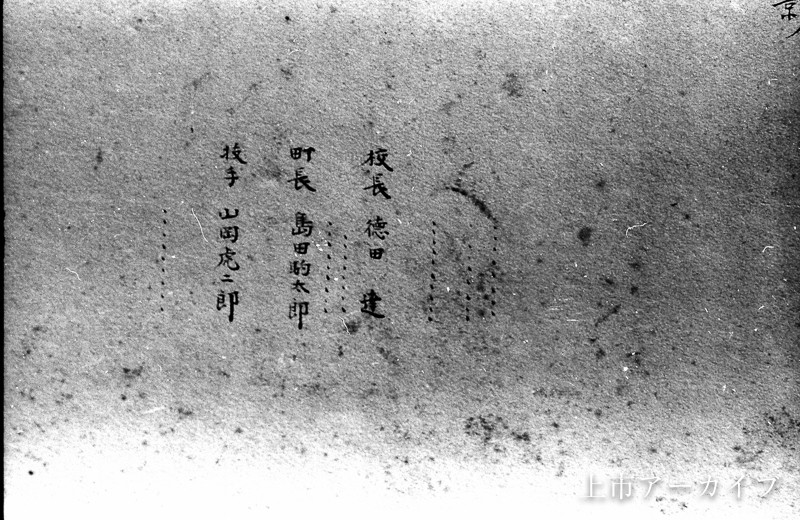 京
校長 徳田 建
町長 島田駒太郎
技手 山岡虎二郎
上市アーカイブ